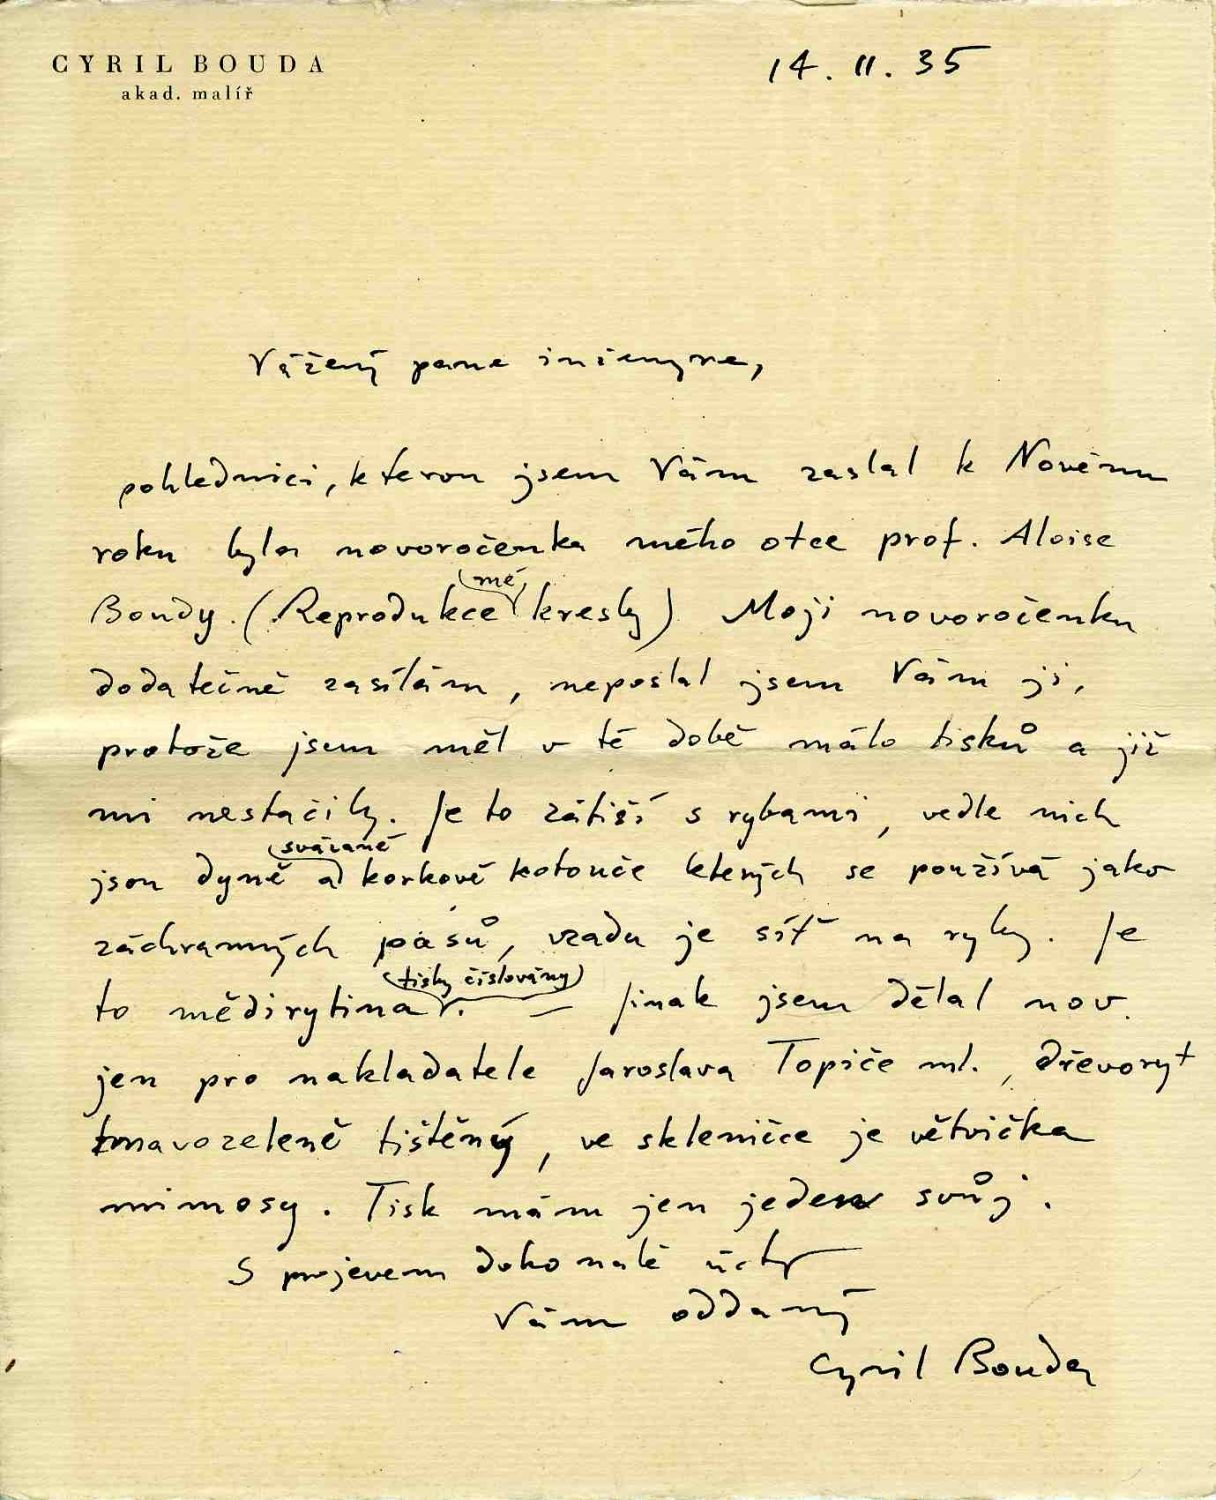 CYRIL BOUDA
akad. malíř
14. II. 35
Vážený pane inženyre,
pohlednici, kterou jsem Vám zaslal k Novému
roku byla novoročenka mého otce prof. Aloise
Boudy. (Reprodukce (mé) kresby) Moji novoročenku
dodatečně zasílám, neposlal jsem Vám ji,
protože jsem měl v té době málo tisků a již
mi nestačily. Je to zátiší s rybami, vedle nich
jsou dyně a (svázané) korkové kotouče kterých se používá jako
záchranných pásů, vzadu je síť na ryby. Je
to mědirytina (tisky číslovány). — Jinak jsem dělal nov.
jen pro nakladatele Jaroslava Topiče ml., dřevoryt
tmavozeleně tištěný, ve skleničce je větvička
mimosy. Tisk mám jen jeden svůj.
S projevem dokonalé úcty
Vám oddaný
Cyril Bouda